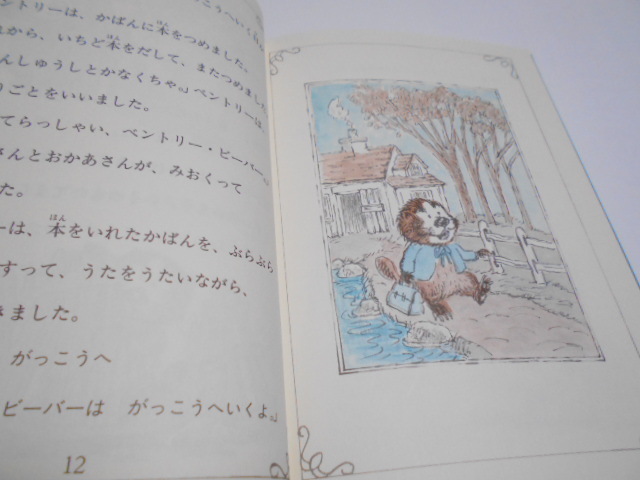 がっこうへいく
ントリーは、かばんに本をつめました。
れから、いちど本をだして、またつめました
んしゅうしとかなくちゃ。」ベントリーは、
りごとをいいました。
てらっしゃい、ベントリー・ビーバー。
さんとおかあさんが、みおくって
た。
ーは、本をいれたかばんを、ぶらぶら
すって、うたをうたいながら、
きました。
がっこうへ
ビーバーは がっこうへいくよ。」
12